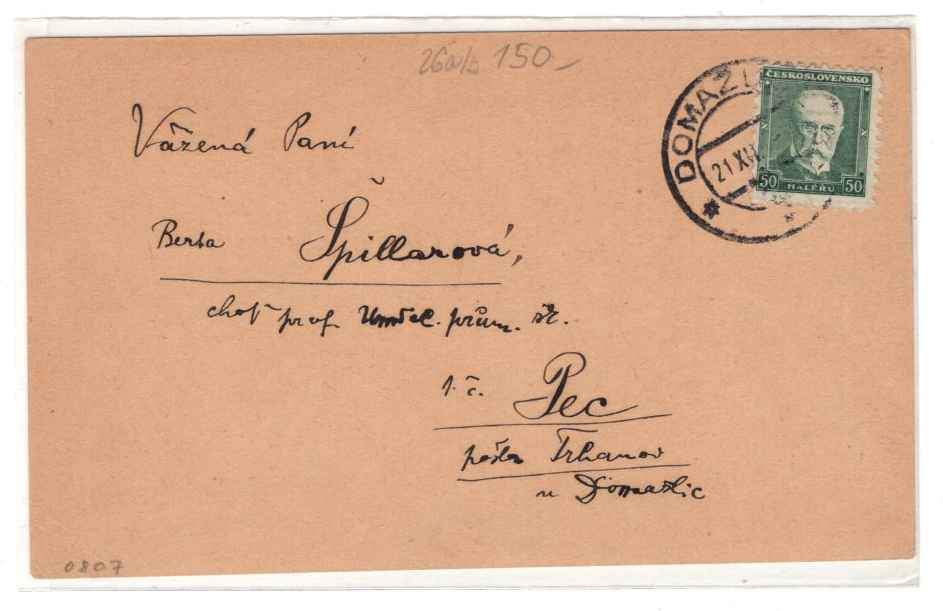 26a/b 150.-
ČESKOSLOVENSKO
50 HALÉŘŮ 50
DOMAŽL
21.XII
Vážená Paní
Berta Špillarová,
choť prof. Uměl. prům. šk.
t. č. Pec
pošta Trhanov
u Domažlic
0807